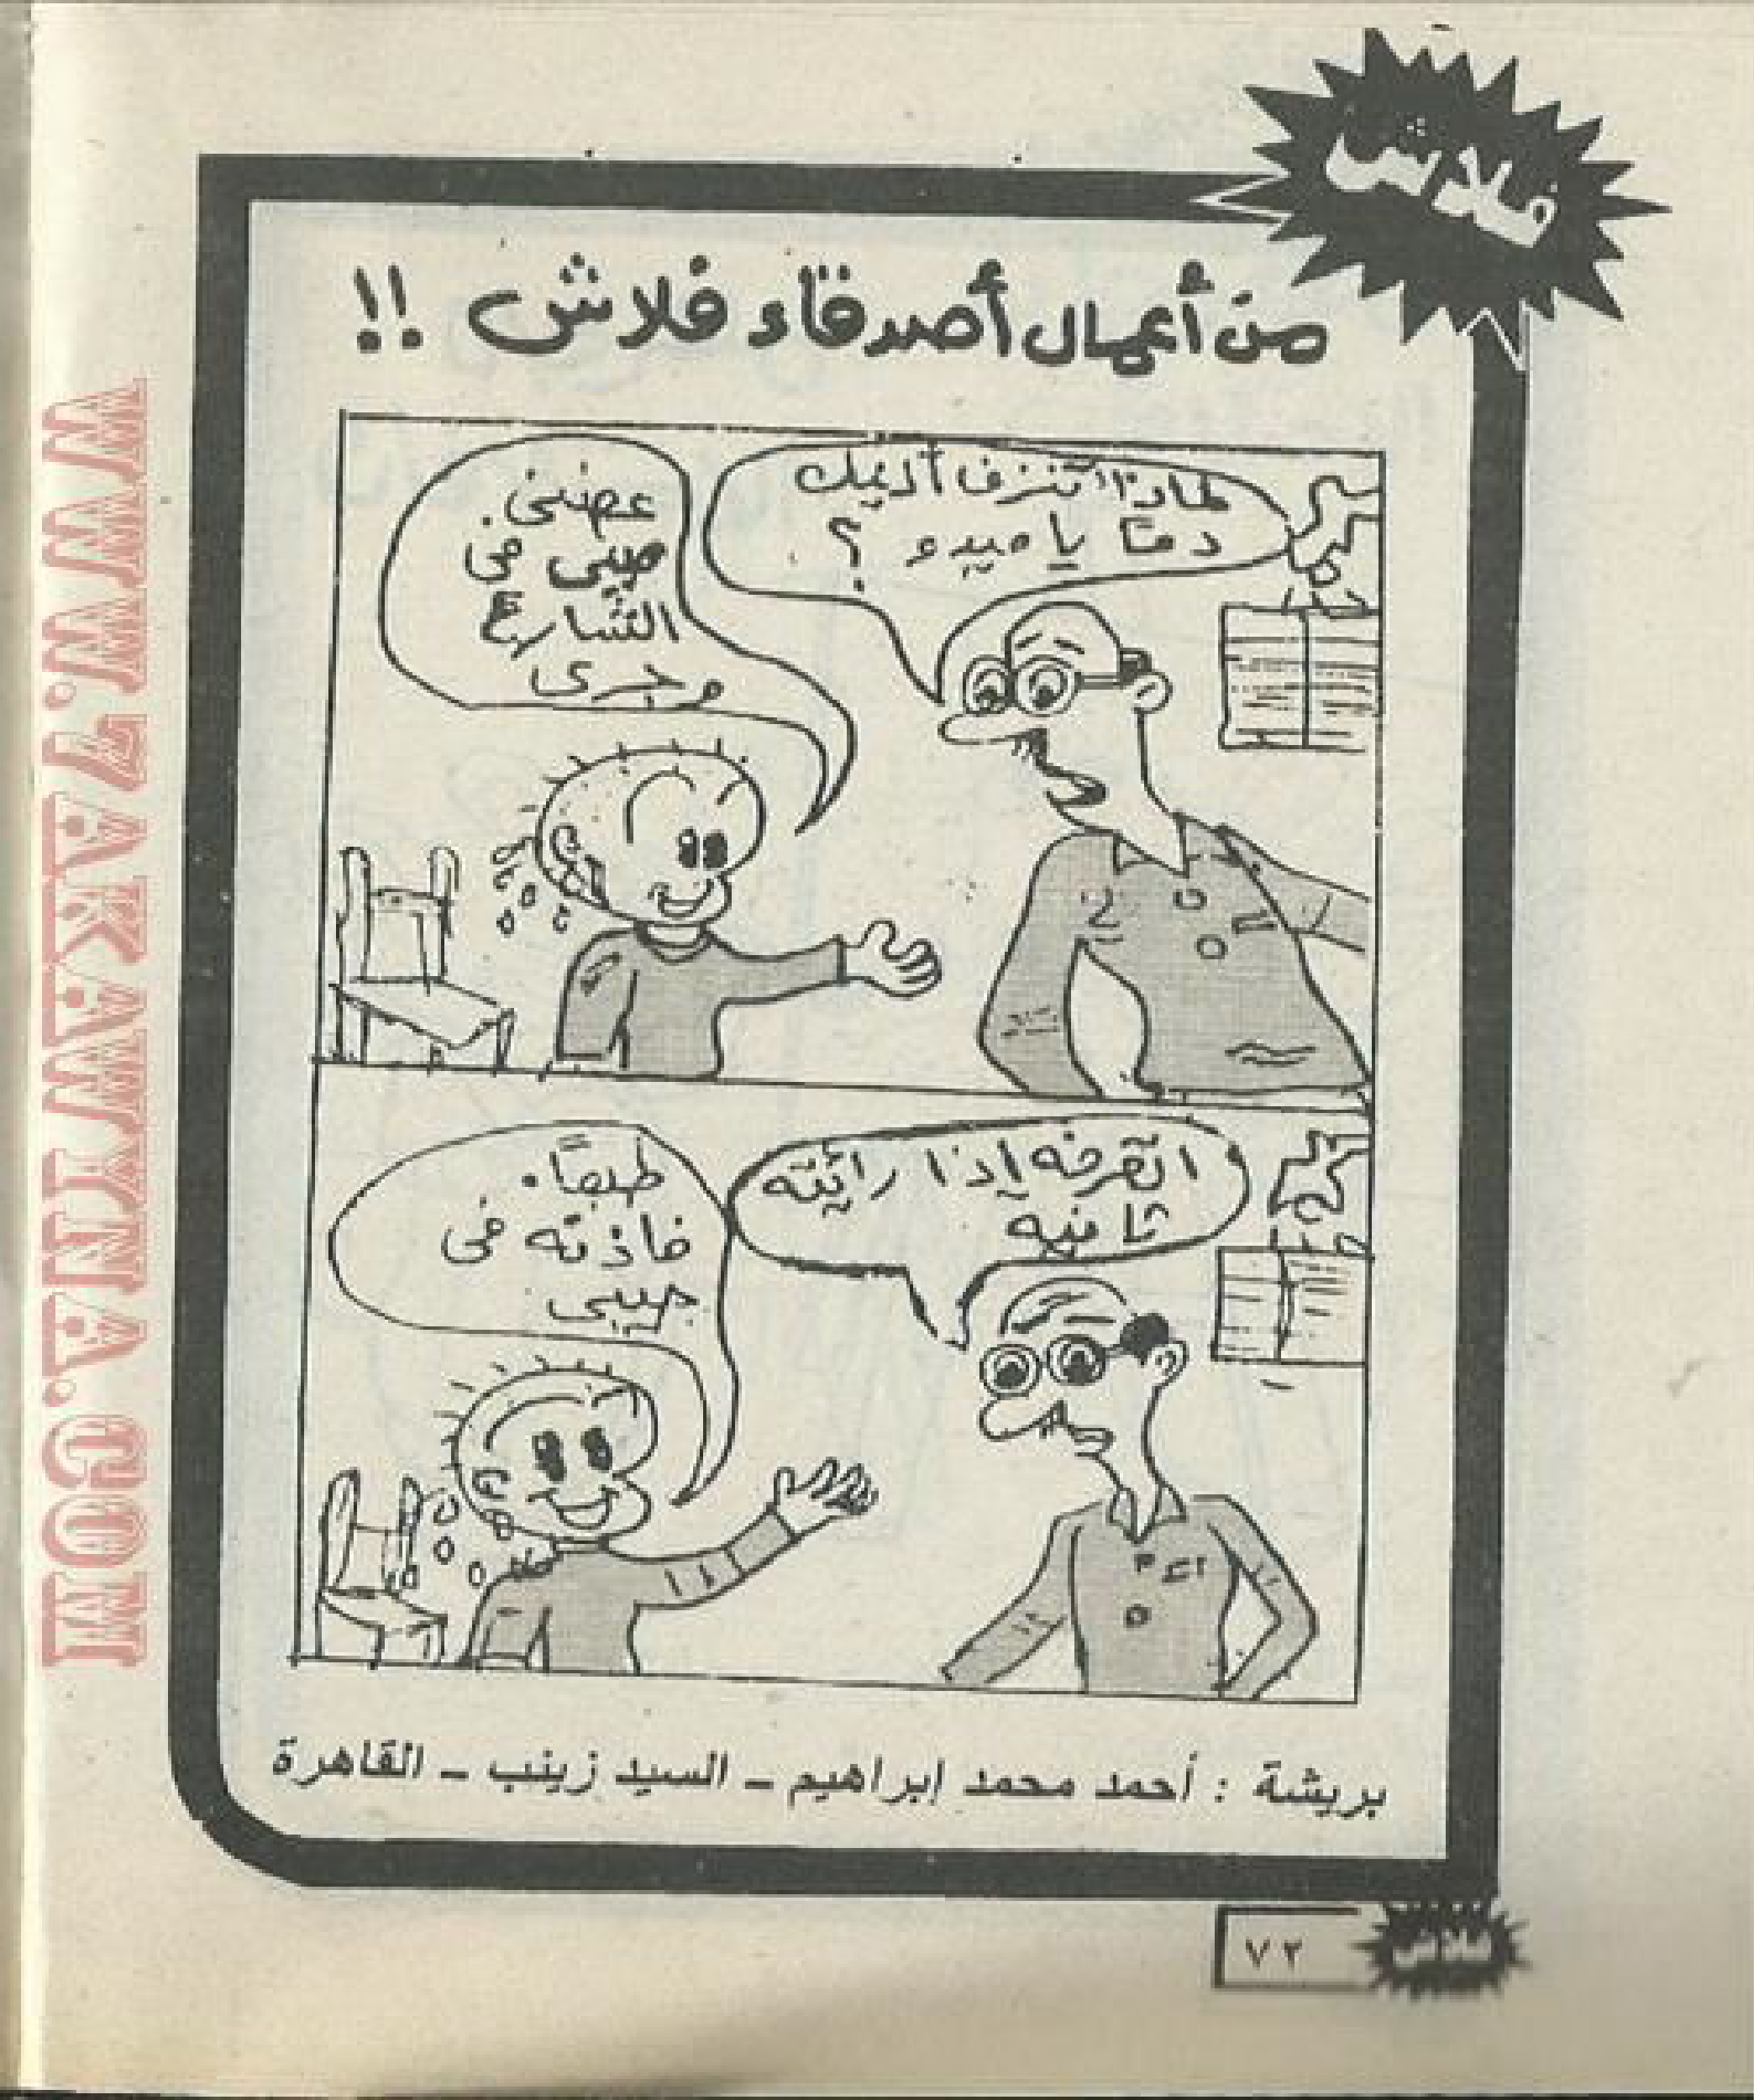 فلاش
من أعمال أصدقاء فلاش !!
لماذا تنزف أذنيك
دمًا يا ميدو ؟
عضني
صبي في
الشارع
وجرى
اتعرفه إذا رائيته
ثانيه
طبعًا.
فاذنه في
جيبي
بريشة : أحمد محمد إبراهيم - السيد زينب - القاهرة
٧٢
فلاش
WWW.7AKAWITNA.COM